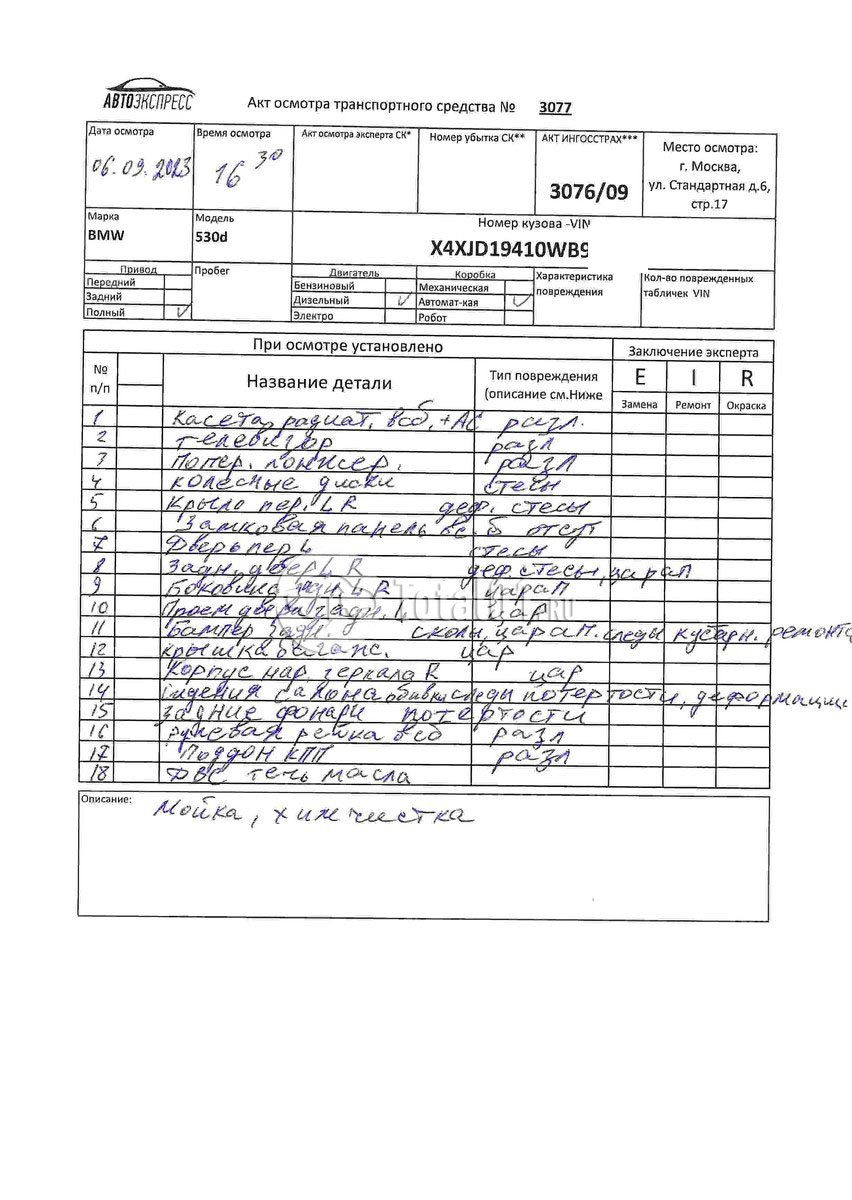 АВТОЭКСПРЕСС
Акт осмотра транспортного средства № 3077
Дата осмотра
06.09.2023
Время осмотра
16 30
Акт осмотра эксперта СК*
Номер убытка СК**
АКТ ИНГОССТРАХ***
3076/09
Место осмотра:
г. Москва,
ул. Стандартная д.6,
стр.17
Марка
BMW
Модель
530d
Номер кузова -VIN
X4XJD19410WB9
Привод
Передний
Задний
Полный ✓
Пробег
Двигатель
Бензиновый
Дизельный ✓
Электро
Коробка
Механическая
Автомат-кая ✓
Робот
Характеристика
повреждения
Кол-во поврежденных
табличек VIN
При осмотре установлено
Заключение эксперта
№
п/п
Название детали
Тип повреждения
(описание см.Ниже
E I R
Замена Ремонт Окраска
1 Касета радиат. в сб, +АС разл.
2 телевизор разл
3 Попер. лонжер. разл
4 колесные диски стесы
5 Крыло пер. L R деф. стесы
6 Замковая панель в с.б отсут
7 Дверь пер L стесы
8 Задн. двер L R деф стесы, царап
9 Боковина задн. L R царап
10 Проем двери задн. L цар
11 Бампер Задн. сколы, царап. следы кустарн. ремонта
12 крышка баганс. цар
13 Корпус нар. зеркала R цар
14 сидения салона обивки следы потертости, деформации
15 задние фонари потертости
16 рулевая рейка в сб разл
17 Поддон КПП разл
18 ДВС течь масла
Описание:
Мойка, химчистка